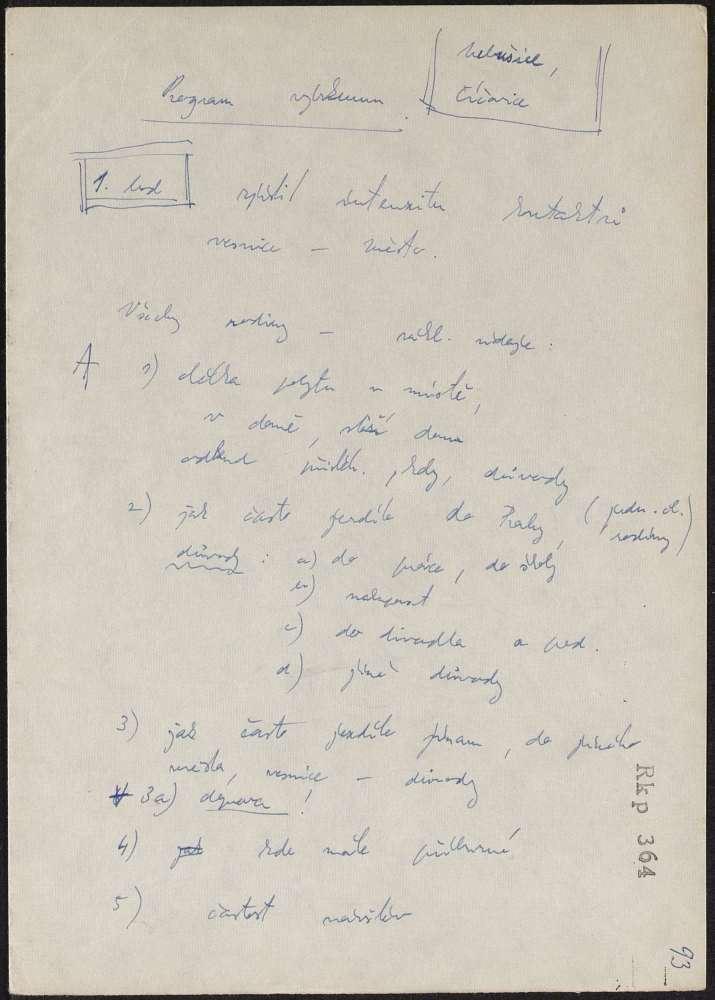 Nebušice,
Číčovice
Program výzkumu.
1. bod
zjistit intenzitu kontaktů
vesnice – město.
Všechny rodiny – zákl. údaje:
A 1) délka pobytu v místě,
v domě, stáří domu
odkud přistěh., kdy, důvody
2) jak často jezdíte do Prahy, (jedn. čl. rodiny)
důvody: a) do práce, do školy
b) nakupovat
c) do divadla a pod.
d) jiné důvody
3) jak často jezdíte jinam, do jiného
města, vesnice – důvody
3a) doprava!
4) jak kde máte příbuzné
5) častost návštěv
Rkp 364
93